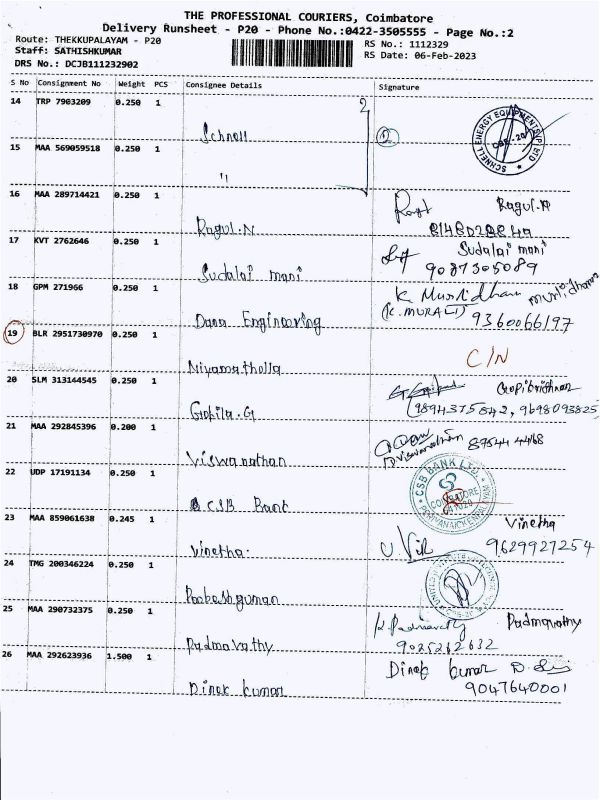 THE PROFESSIONAL COURIERS, Coimbatore
Delivery Runsheet - P20 - Phone No.:0422-3505555 - Page No.:2
Route: THEKKUPALAYAM - P20
Staff: SATHISHKUMAR
DRS No.: DCJB111232902
RS No.: 1112329
RS Date: 06-Feb-2023
S No Consignment No Weight PCS Consignee Details Signature
14 TRP 7903209 0.250 1 2
Schnell
SCHNELL ENERGY EQUIPMENTS (P) LTD
15 MAA 569059518 0.250 1
"
16 MAA 289714421 0.250 1 Ragul.N
Ragul.N
17 KVT 2762646 0.250 1 Sudalai mani
Sudalai mani 9087305089
18 GPM 271966 0.250 1 K Muralidharan
Dana Engineering (K.MURALI) 9360066197
19 BLR 2951730970 0.250 1 C/N
Niyamathulla
20 SLM 313144545 0.250 1 Gopikrishnan
Gopila.G (9894375842, 9698093825)
21 MAA 292845396 0.200 1
Viswanathan D Viswanathan
22 UDP 17191134 0.250 1 CSB BANK LTD.
C.S.B Bank
23 MAA 859061638 0.245 1 Vinetha
Vinetha 9629927254
24 TMG 200346224 0.250 1
25 MAA 290732375 0.250 1 Padmavathy
Padmavathy 9025262632
26 MAA 292623936 1.500 1 Dinek kumar
Dinek kumar 9047640001